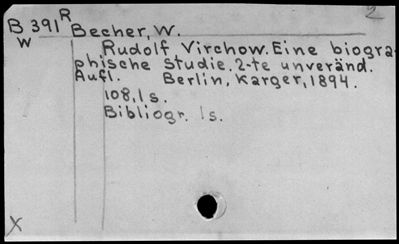 2
B 391 R Becher, W.
W
Rudolf Virchow. Eine biogra-
phische Studie. 2-te unveränd.
Aufl. Berlin, Karger, 1894.
108,1 s.
Bibliogr. 1s.
X